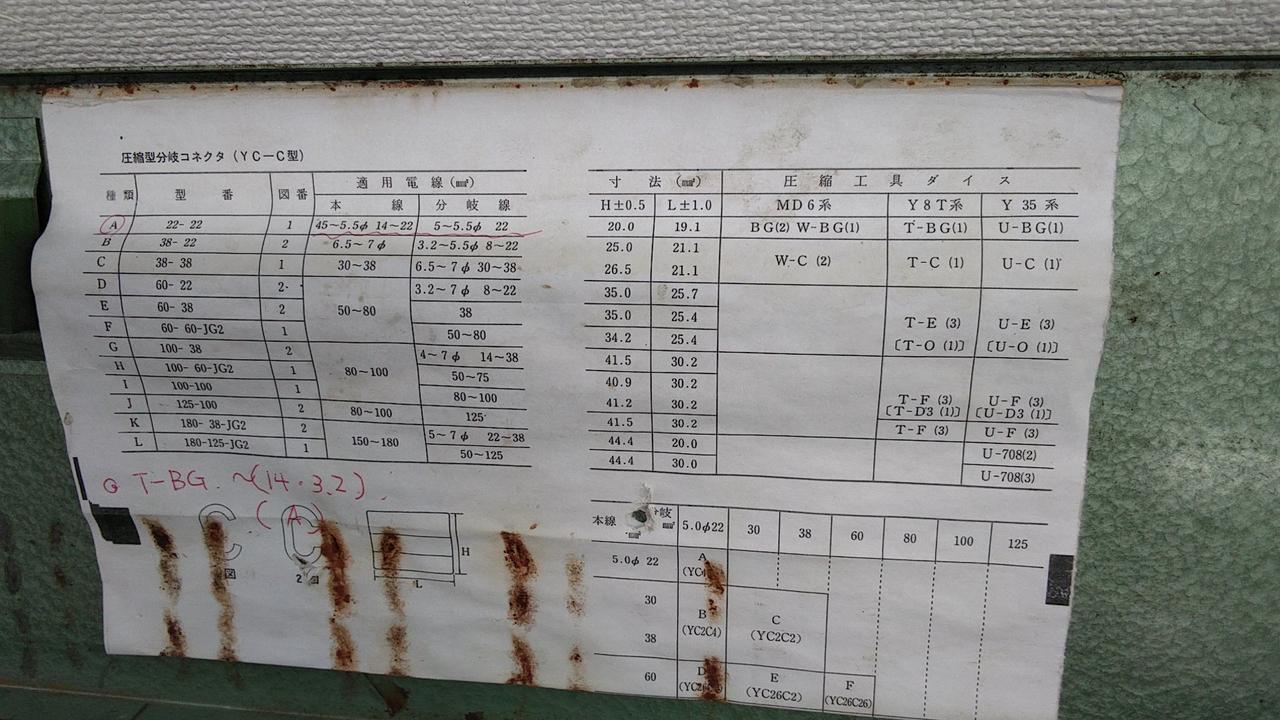 圧縮型分岐コネクタ（YC－C型）
種類 型番 図番 適用電線（㎟） 寸法（㎜） 圧縮工具ダイス
本線 分岐線 H±0.5 L±1.0 MD6系 Y8T系 Y35系
A 22-22 1 45～5.5φ 14～22 5～5.5φ 22 20.0 19.1 BG(2) W-BG(1) T-BG(1) U-BG(1)
B 38-22 2 6.5～7φ 3.2～5.5φ 8～22 25.0 21.1
C 38-38 1 30～38 6.5～7φ 30～38 26.5 21.1 W-C (2) T-C (1) U-C (1)
D 60-22 2 3.2～7φ 8～22 35.0 25.7
E 60-38 2 50～80 38 35.0 25.4 T-E (3) U-E (3)
F 60-60-JG2 1 50～80 34.2 25.4 〔T-O (1)〕 〔U-O (1)〕
G 100-38 2 4～7φ 14～38 41.5 30.2
H 100-60-JG2 1 80～100 50～75 40.9 30.2
I 100-100 1 80～100 41.2 30.2 T-F (3) U-F (3)
〔T-D3 (1)〕 〔U-D3 (1)〕
J 125-100 2 80～100 125 41.5 30.2 T-F (3) U-F (3)
K 180-38-JG2 2 150～180 5～7φ 22～38 44.4 20.0 U-708(2)
L 180-125-JG2 1 50～125 44.4 30.0 U-708(3)
T-BG ～(14・3.2)
(A)
図 2 H L
本線 ㎟ 岐 ㎟ 5.0φ22 30 38 60 80 100 125
5.0φ 22 A
30 B C
38 (YC2C4) (YC2C2)
60 D E F
(YC26C2) (YC26C26)